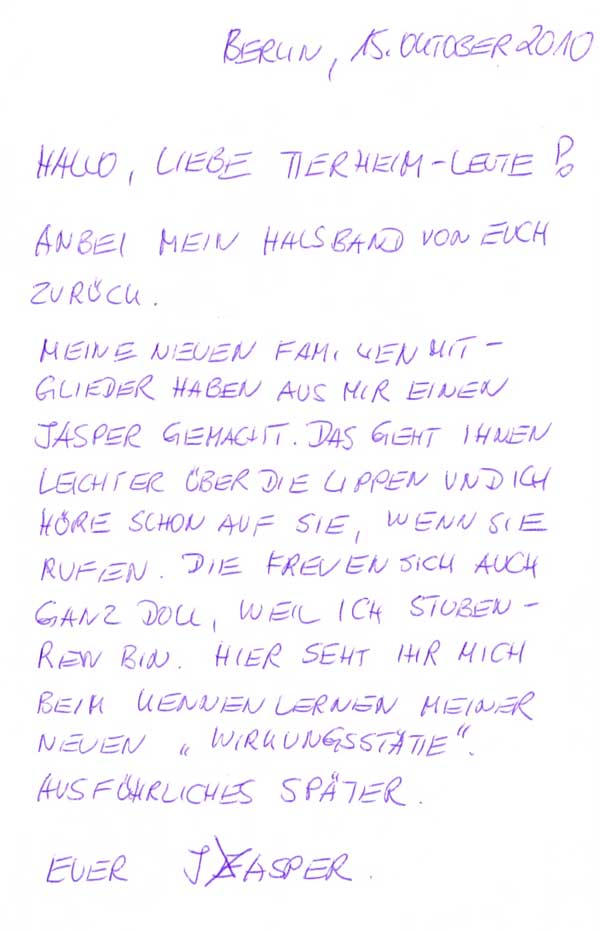 BERLIN, 15. OKTOBER 2010
HALLO, LIEBE TIERHEIM-LEUTE!
ANBEI MEIN HALSBAND VON EUCH
ZURÜCK.
MEINE NEUEN FAMILIENMIT-
GLIEDER HABEN AUS MIR EINEN
JASPER GEMACHT. DAS GEHT IHNEN
LEICHTER ÜBER DIE LIPPEN UND ICH
HÖRE SCHON AUF SIE, WENN SIE
RUFEN. DIE FREUEN SICH AUCH
GANZ DOLL, WEIL ICH STUBEN-
REIN BIN. HIER SEHT IHR MICH
BEIM KENNENLERNEN MEINER
NEUEN „WIRKUNGSSTÄTTE“.
AUSFÜHRLICHES SPÄTER.
EUER JASPER.